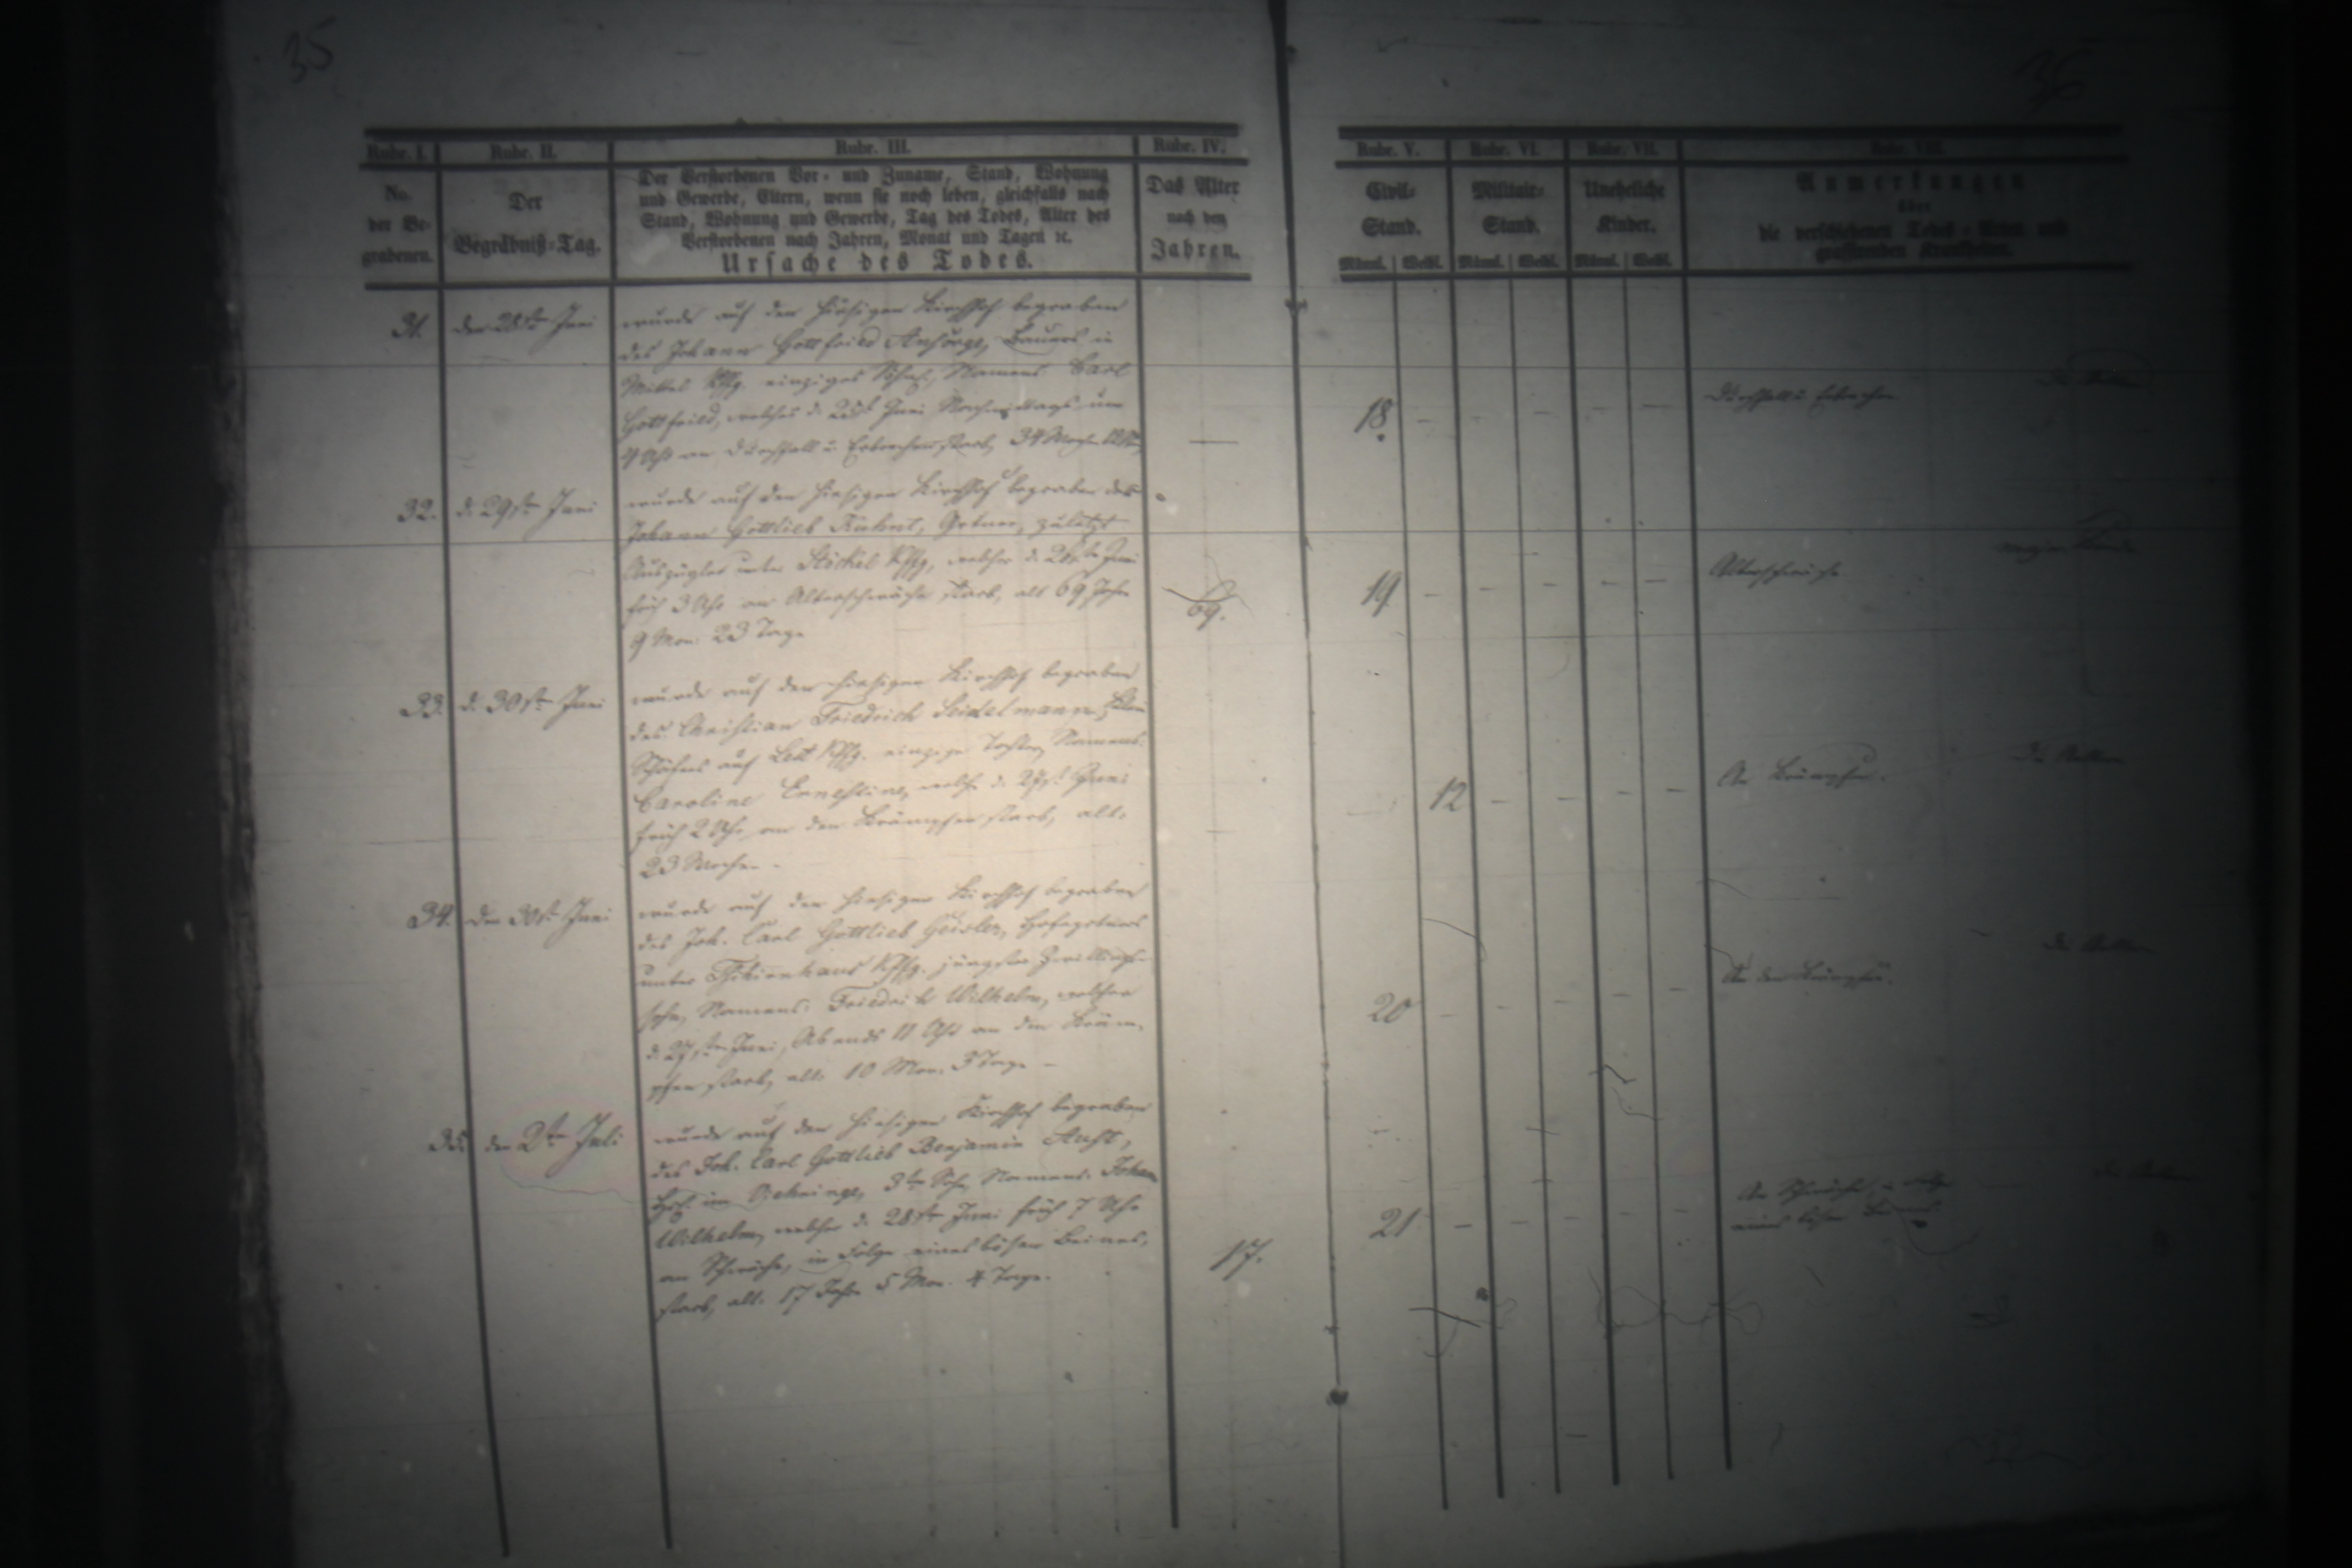 35
36
Rubr. I.
Rubr. II.
Rubr. III.
Rubr. IV.
Rubr. V.
Rubr. VI.
Rubr. VII.
Rubr. VIII.
No.
der Be-
grabenen.
Der
Begräbniß-Tag.
Der Verstorbenen Vor- und Zuname, Stand, Wohnung
und Gewerbe, Eltern, wenn sie noch leben, gleichfalls nach
Stand, Wohnung und Gewerbe, Tag des Todes, Alter des
Verstorbenen nach Jahren, Monat und Tagen ꝛc.
Ursache des Todes.
Das Alter
nach den
Jahren.
Civil-
Stand.
Männl. | Weibl.
Militair-
Stand.
Männl. | Weibl.
Uneheliche
Kinder.
Männl. | Weibl.
Anmerkungen
über
die verschiedenen Todes-Arten und
grassirenden Krankheiten.
31. den 28ste Juni
wurde auf den hiesigen Kirchhof begraben
des Johann Gottfried Ansorge, Bauers in
einziges Namens: Carl
Gottfried, welches d. Juni Nachmittags um
4 Uhr an Durchfall u. Erbrechen starb, 34 Wochen
18
Durchfall u. Erbrechen
32. d. 29ste Juni
wurde auf den hiesigen Kirchhof begraben der
Johann Gottlieb Kuhnt, Gärtner, zuletzt
Auszügler unter welcher d. Juni
früh 3 Uhr an Altersschwäche starb, alt 69 Jahr
9 Mon. 23 Tage
69.
19
Altersschwäche
33. d. 30ste Juni
wurde auf den hiesigen Kirchhof begraben
des Christian Friedrich Seidelmann,
Schäfers auf einzige Tochter, Namens:
Caroline Ernestine, welche d. 27st Juni
früh 2 Uhr an den Krämpfen starb, alt:
23 Wochen
12
An Krämpfen.
34. den 30st Juni
wurde auf den hiesigen Kirchhof begraben
des Joh. Carl Gottlieb Geisler, Hofegärtners
unter jüngster Zwillings-
sohn, Namens: Friedrich Wilhelm, welcher
d. 27ste Juni, Abends 11 Uhr an den Kräm-
pfen starb, alt: 10 Mon. 3 Tage
20
An den Krämpfen.
35. den 2te Juli
wurde auf den hiesigen Kirchhof begraben
des Joh. Carl Gottlieb Benjamin Aust,
im 3te Sohn, Namens: Johann
Wilhelm, welcher d. 28ste Juni früh 7 Uhr
an Schwäche, in Folge eines bösen Beines,
starb, alt: 17 Jahr 5 Mon. 4 Tage.
17.
21
An Schwäche, in Folge
eines bösen Beines.